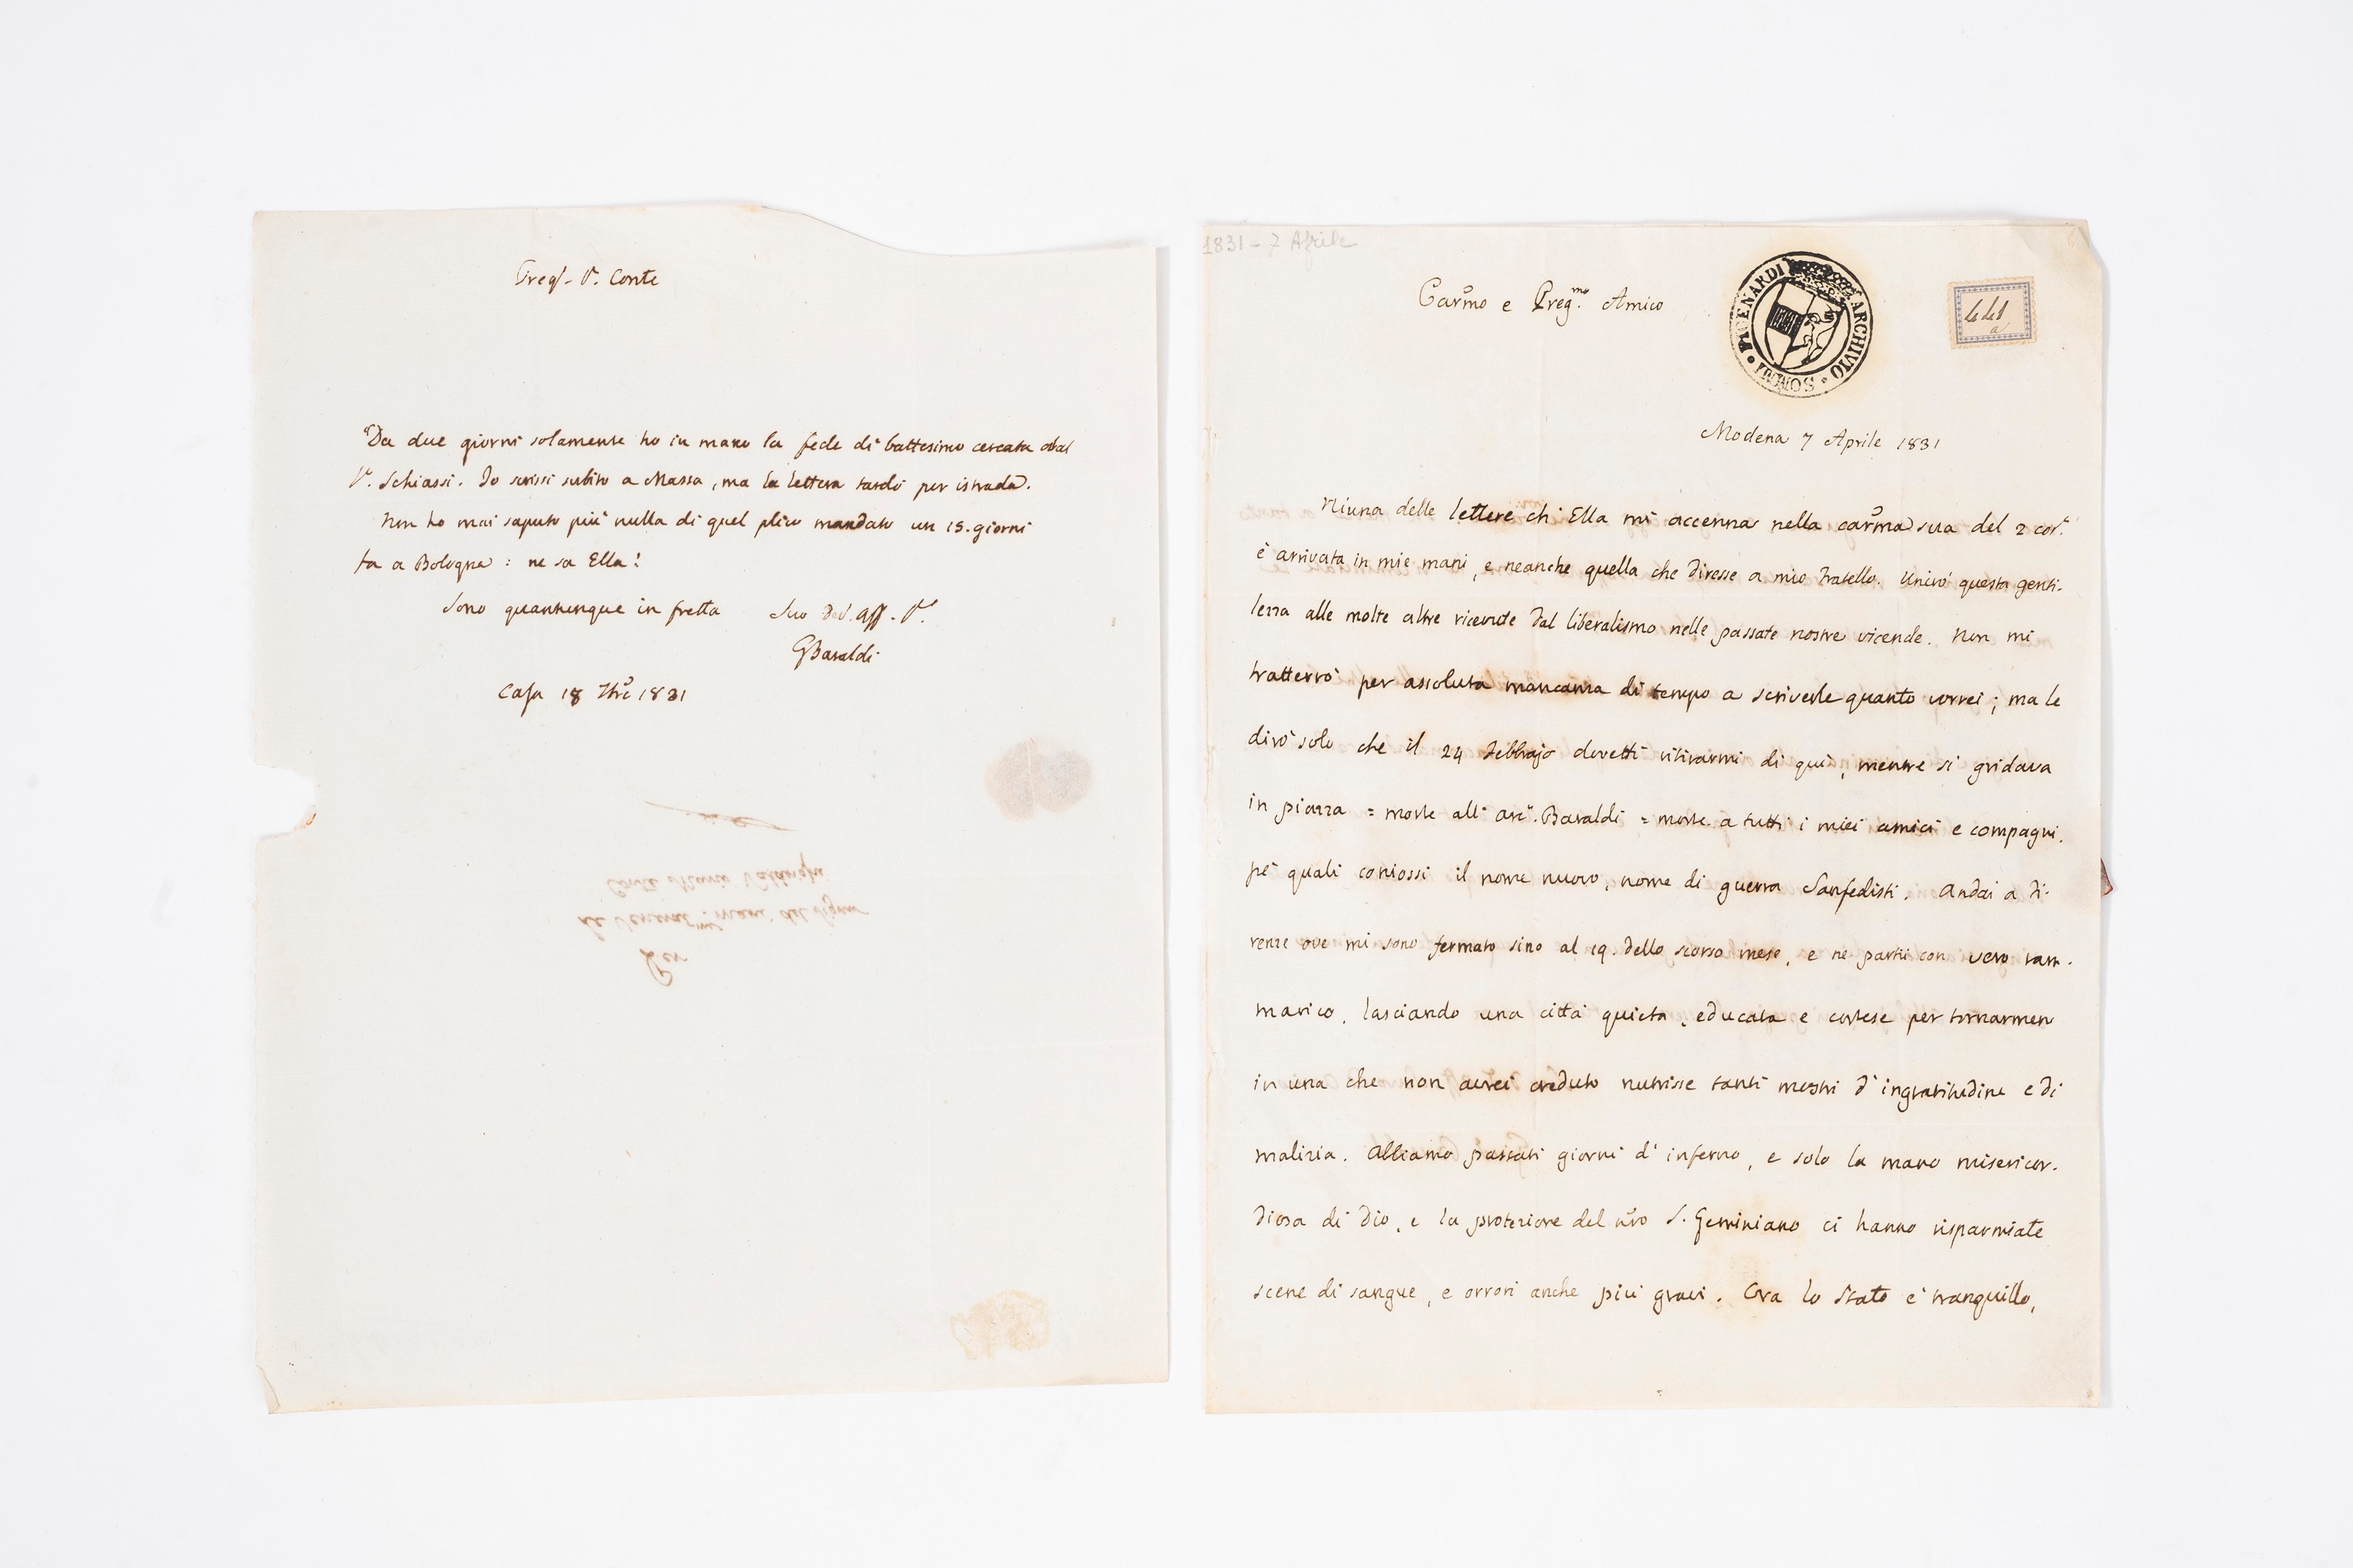 Preg. S. Conte
Da due giorni solamente ho in mano la fede di battesimo cercata dal
S. Schiassi. Io scrissi subito a Massa, ma la lettera tardò per istrada.
Non ho mai saputo più nulla di quel plico mandato un 15. giorni
fa a Bologna: ne sa Ella!
Sono quantunque in fretta Suo Dev. Aff. S.
GBaraldi
Casa 18 1831
Per
le mani del Signor
Conte Mario Valdrighi
1831 - 7 Aprile
Carmo e Preg.mo Amico
PICENARDI ARCHIVIO SOMMI
441
a
Modena 7 Aprile 1831
Niuna delle lettere ch' Ella mi accenna nella carma sua del 2 cor.e
è arrivata in mie mani, e neanche quella che diresse a mio Fratello. Unirò questa genti-
lezza alle molte altre ricevute dal liberalismo nelle passate nostre vicende. Non mi
tratterrò per assoluta mancanza di tempo a scriverle quanto vorrei; ma le
dirò solo che il 24 Febbrajo dovetti ritirarmi di quì, mentre si gridava
in piazza = morte all' arc. Baraldi = morte a tutti i miei amici e compagni,
pe' quali coniossi il nome nuovo, nome di guerra Sanfedisti. Andai a Fi-
renze ove mi sono fermato sino al 19. dello scorso mese, e ne partii con vero ram-
marico, lasciando una città quieta, educata e cortese per tornarmen
in una che non avrei creduto nutrisse tanti mostri d' ingratitudine e di
malizia. Abbiamo passati giorni d' inferno, e solo la mano misericor-
diosa di Dio, e la protezione del nro S. Geminiano ci hanno risparmiate
scene di sangue, e orrori anche più gravi. Ora lo Stato è tranquillo,